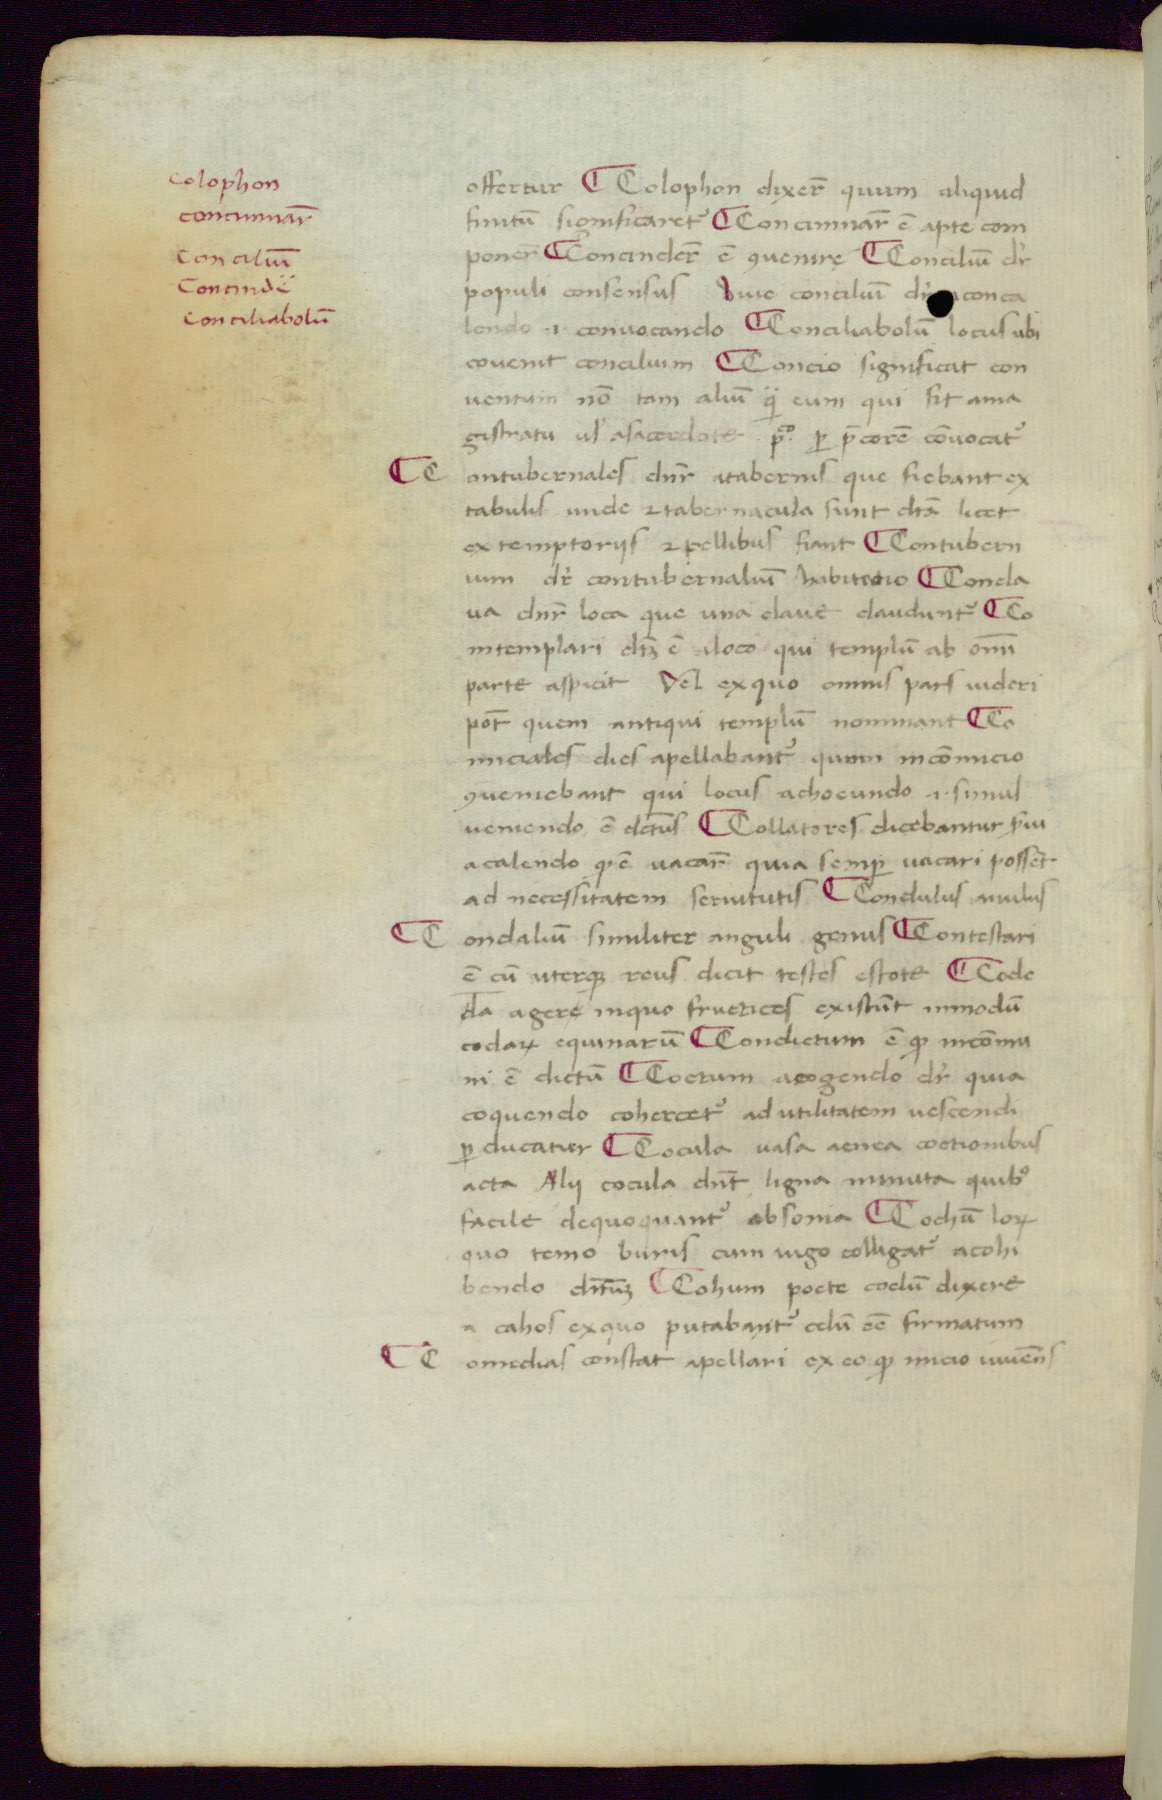 Colophon
concinnar̄
Conciliū
Concinde
conciliabolū
offertur ⸿ Colophon dixer̄ quum aliquid
finitū significaret᷑ ⸿ Concinnar̄ ē apte com
poner̄ ⸿ Concinder̄ ē ꝯuenire ⸿ Conciliū dr̄
populi consensus huie conciliū dr̄ aconca
lendo .i. conuocando ⸿ Conciliabolū locus ubi
covenit concilium ⸿ Concio significat con
uentum nō tam aliū q̄ eum qui fit ama
gistratu ul̄ asacerdote ꝑ p̄corē cōuocat᷑
⸿ C ontubernales dn̄r atabernis que fiebant ex
tabulis unde ⁊ tabernacula sunt dt̄a licet
ex temptoriis ⁊ pellibus fiant ⸿ Contubern
ium dr̄ contubernaliū habitatio ⸿ Concla
ua dn̄r loca que una claue claudunt᷑ ⸿ Co
ntemplari dt̄ꝫ ē aloco qui templū ab om̄i
parte aspicit Vel ex quo omnis pars uideri
pōt quem antiqui templū nominant ⸿ Co
miciales dies apellabant᷑ quum incōmicio
ꝯueniebant qui locus achoeundo .i. simul
ueniendo ē dctūs ⸿ Collatores dicebantur s̄ui
acalendo qḗ uacar̄ quia semꝑ uacari possēt
ad necessitatem seruitutis ⸿ Condulus anulus
⸿ C ondaliū similiter anguli genus ⸿ Contestari
ē cū uterqꝫ reus dicit testes estote ⸿ Code
da agere inquo frutices existūt inmodū
codaꝝ equinarū ⸿ Condictum ē ꝙ incōmu
ni ē dictū ⸿ Coctum acogendo dr̄ quia
coquendo cohercet᷑ ad utilitatem uescendi
ꝑducatur ⸿ Cocula uasa aenea coctionibus
acta Alij cocula dn̄t ligna minuta quibꝰ
facile dequoquant᷑ obsonia ⸿ Cochū loꝝ
quo temo buris cum iugo colligat᷑ acohi
bendo dn̄tūꝫ ⸿ Cohum poete coelū dixere
a cahos ex quo putabant᷑ celū eē firmatum
⸿ C omedias constat apellari ex eo ꝙ inicio iuuēns